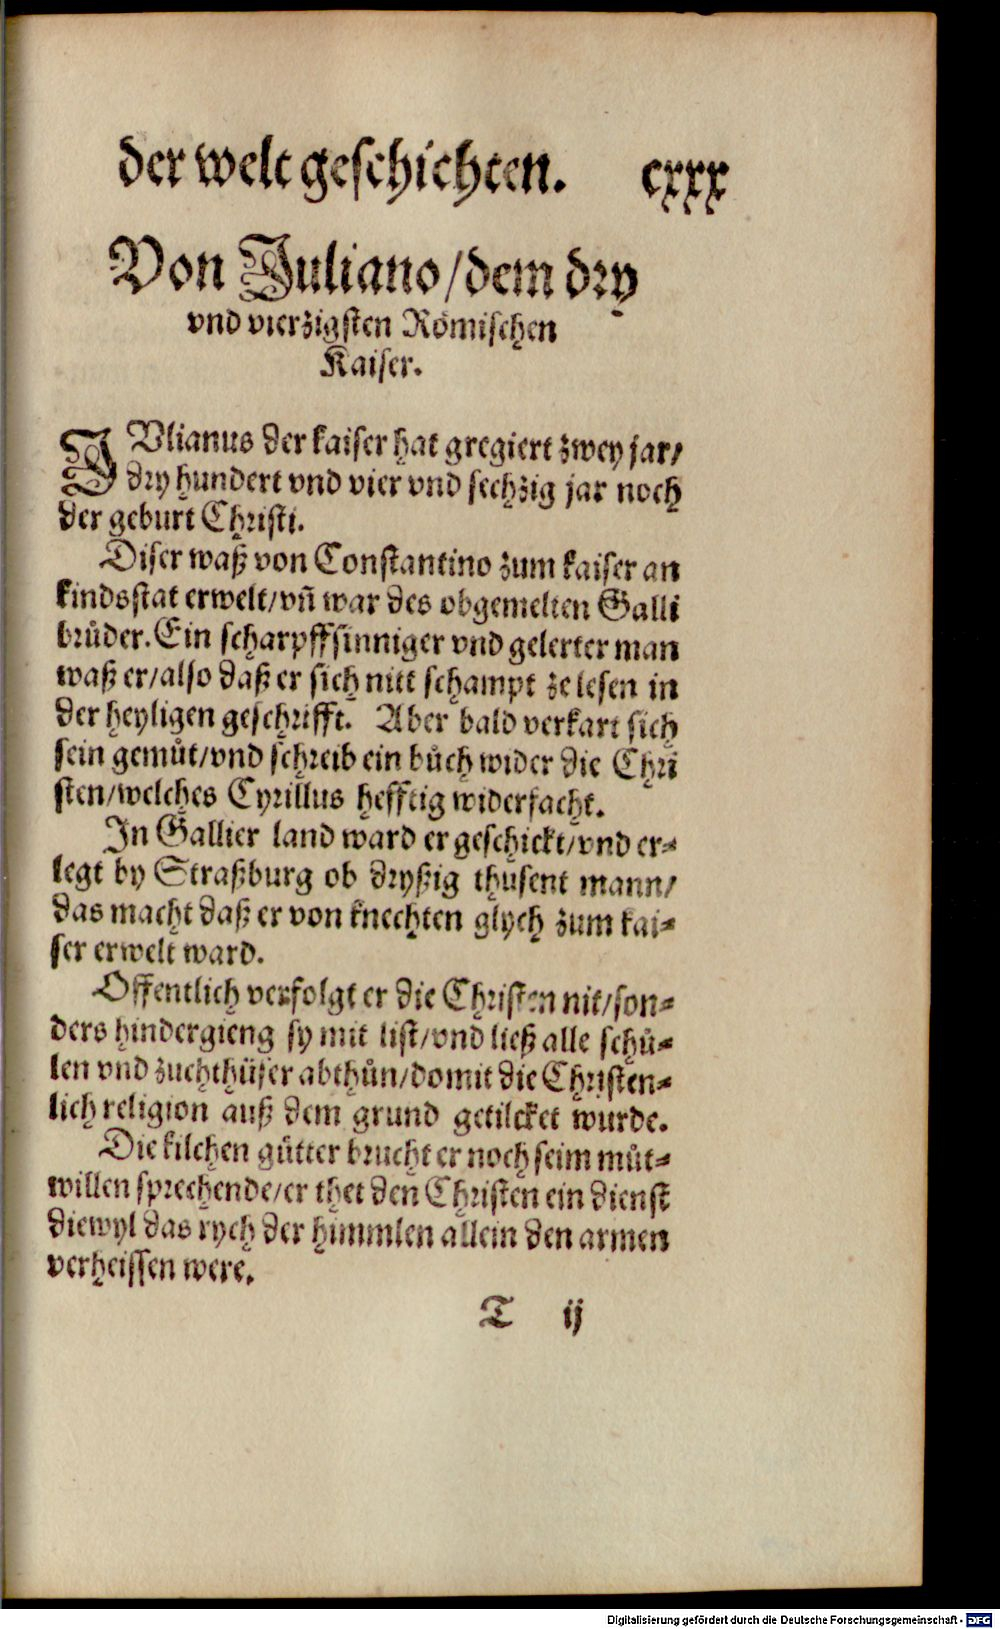 der welt geschichten. cxxx
Von Juliano/dem dry
vnd vierzigsten Römischen
Kaiser.
JVlianus der kaiser hat gregiert zwey jar/
dry hundert vnd vier vnd sechzig jar noch
der geburt Christi.
Diser waß von Constantino zum kaiser an
kindsstat erwelt/vñ war des obgemelten Galli
brůder. Ein scharpffsinniger vnd gelerter man
waß er/also daß er sich nitt schampt ze lesen in
der heyligen geschrifft. Aber bald verkart sich
sein gemůt/vnd schreib ein bůch wider die Chri
sten/welches Cyrillus hefftig widerfacht.
In Gallier land ward er geschickt/vnd er-
legt by Straßburg ob dryßig thusent mann/
das macht daß er von knechten glych zum kai-
ser erwelt ward.
Offentlich verfolgt er die Christen nit/son-
ders hindergieng sy mit list/vnd ließ alle schů-
len vnd zuchthüser abthůn/domit die Christen-
lich religion auß dem grund getilcket wurde.
Die kilchen gůtter brucht er noch seim můt-
willen sprechende/er thet den Christen ein dienst
diewyl das rych der himmlen allein den armen
verheissen were.
T ij
Digitalisierung gefördert durch die Deutsche Forschungsgemeinschaft - DFG